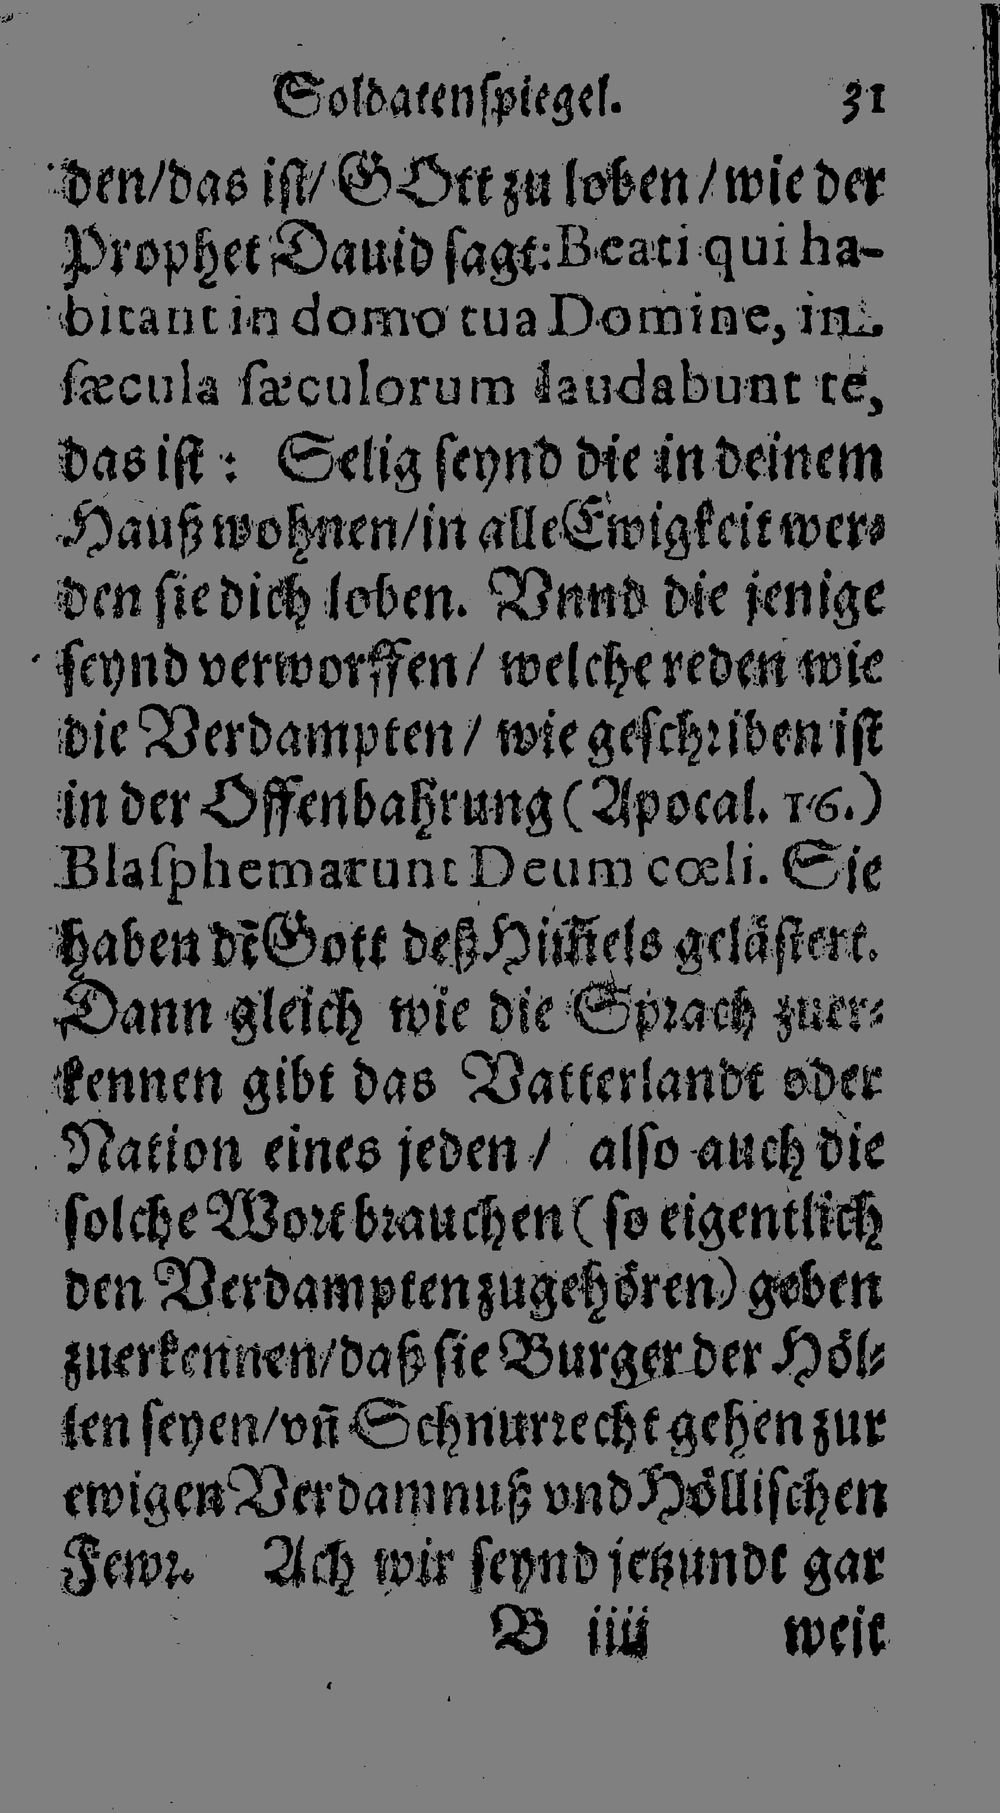 Soldatenſpiegel. 31
den/das iſt/ GOtt zu loben/ wie der
Prophet Dauid ſagt: Beati qui ha-
bitant in domo tua Domine, in
ſæcula ſæculorum laudabunt te,
das iſt: Selig ſeynd die in deinem
Hauß wohnen/in alle Ewigkeit wer-
den ſie dich loben. Vnnd die jenige
ſeynd verworffen/ welche reden wie
die Verdampten/ wie geſchriben iſt
in der Offenbahrung (Apocal. 16.)
Blaſphemarunt Deum cœli. Sie
haben dē Gott deß Him̄els geläſtert.
Dann gleich wie die Sprach zuer-
kennen gibt das Vatterlandt oder
Nation eines jeden/ alſo auch die
ſolche Wort brauchen (ſo eigentlich
den Verdampten zugehören) geben
zuerkennen/daß ſie Burger der Höl-
len ſeyen/vn̄ Schnurrecht gehen zur
ewigen Verdamnuß vnd Höllischen
Fewr. Ach wir ſeynd jetzundt gar
B iiij weit